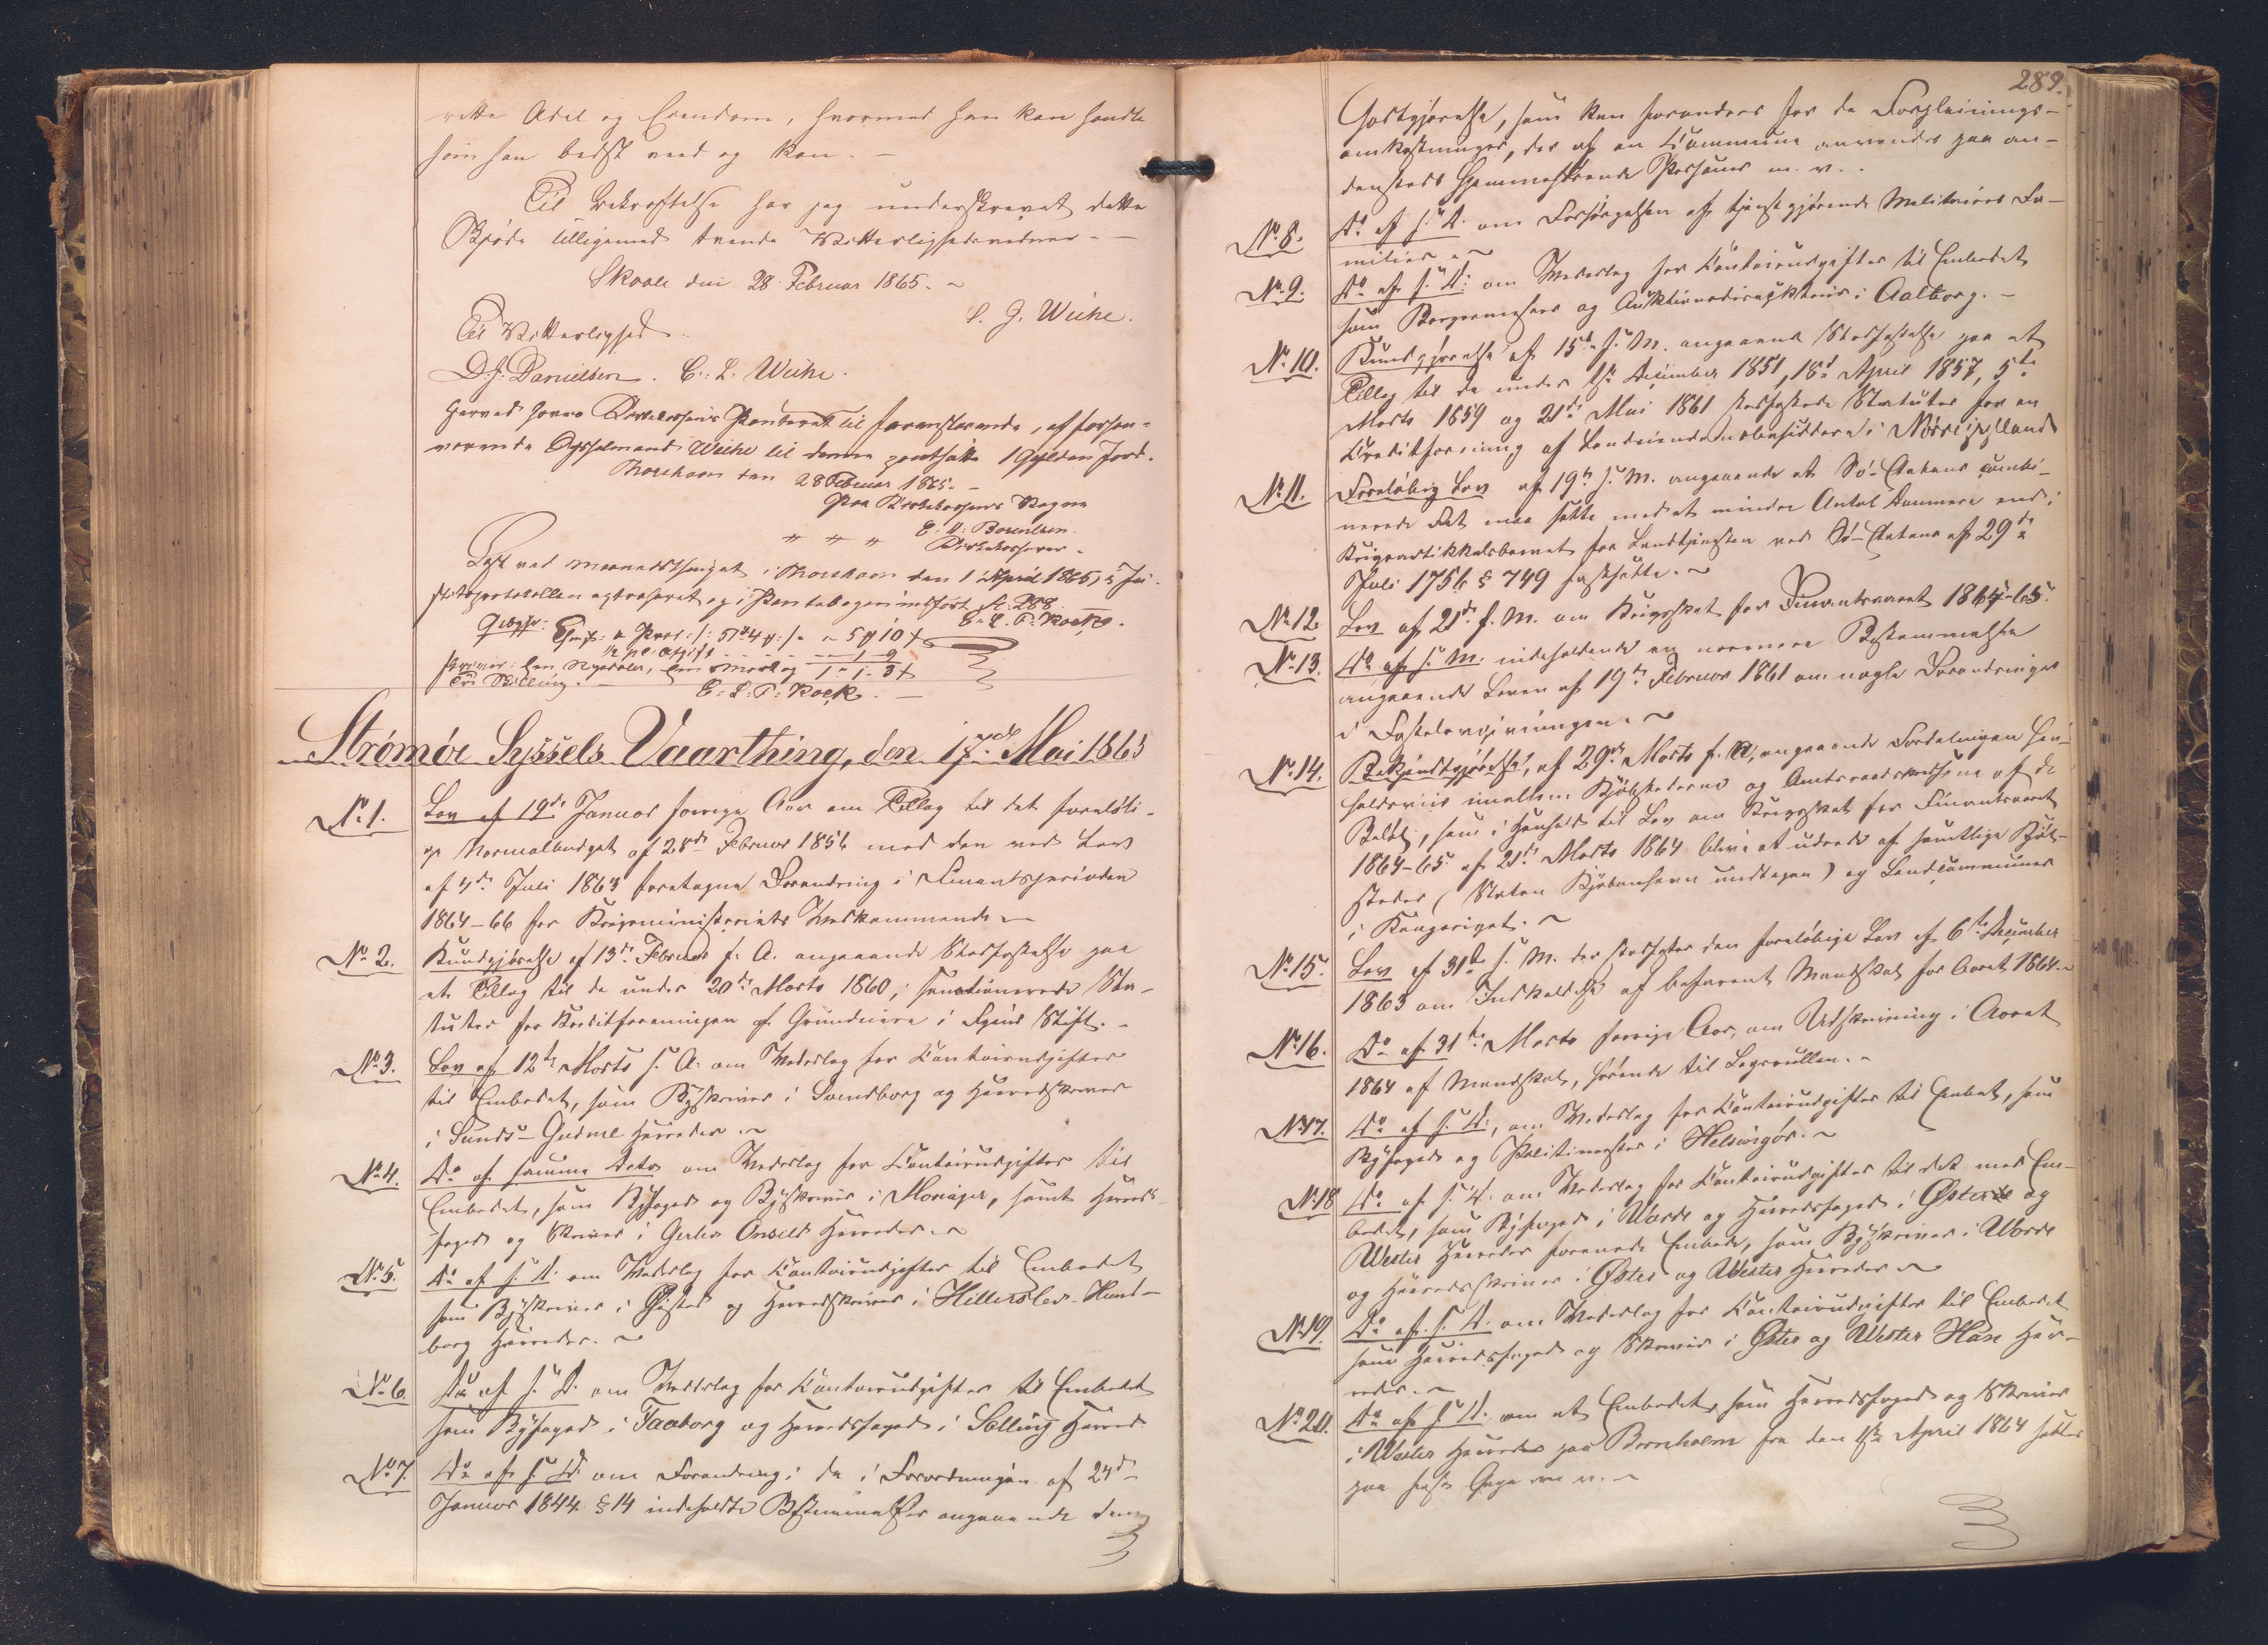 rette Odel og Eiendom, hvormed han kan handle
som han bedst veed og kan. –
Til Bekræftelse har jeg underskrevet dette
Skjøde tilligemed tvende Vitterlighedsvidner. –
Skaale den 28 Februar 1865. ~
S. J. Weihe.
Til Vitterlighed.
D. J. Danielsen. C: L: Weihe.
herved Panteret til foranstaaende, af forhen-
værende Sysselmand Weihe til denne pantsatte 1 Gylden Jord.
Thorshavn den 28 Februar 1865. –
Paa Vegne
" " " E: A: Borentsen.
Læst ved Maanedsthinget i Thorshavn den 1 April 1865, i Ju-
stitsprotokollen extraheret og i Pantebogen indført fol: 288.
E: L: P: Rock.
Gebyhr:
½ pC. Afgift
skriver: Een Rigsdaler, Een Mark og
Tre Skilling. –
E: L: P: Rock. –
Strømøe Syssels Vaarthing, den 17de Mai 1865
No 1. Lov af 19de Januar forrige Aar om Tillæg til det foreløbi-
ge Normalbudget af 28de Februar 1856 med den ved Lov
af 4de Juli 1863 foretagne Forandring i Finantsperioden
1864–66 for Krigsministeriets Vedkommende. ~
No 2. Kundgjørelse af 13de Februar f. A. angaaende Stadfæstelse paa
et Tillæg til de under 20de Marts 1860, sanctionerede Sta-
tuter for Kreditforeningen af Grundeiere i Fyens Stift. –
No 3. Lov af 12te Marts s. A. om Vederlag for Contoirudgifter
til Embedet, som Byskriver i Svendborg og Herredsskriver
i Sunds-Gudme Herreder. ~
No 4. Do af samme Dato om Vederlag for Contoirudgifter til
Embedet, som Byfoged og Byskriver i Mariager, samt Herreds-
foged og Skriver i Gerlev Onsild Herreder. ~
No 5. Do af s. D. om Vederlag for Contoirudgifter til Embedet
som Byskriver i Thisted og Herredsskriver i Hillerslev-Hund-
borg Herreder. ~
No 6. Do af s. D. om Vederlag for Contoirudgifter til Embedet
som Byfoged i Faaborg og Herredsfoged i Salling Herred.
No 7. Do af s. D. om Forandring i de i Forordningen af 24de
Januar 1844 § 14 indeholdte Bestemmelser angaaende den
289.
Godtgjørelse, som kan forandres for de Forpleinings-
omkostninger, der af en Commune anvendes paa an-
densteds hjemmehørende Personer m. v. ~
No 8. Do af s. D. om Forsørgelsen af tjenstgjørende Militaires Fa-
milier. ~
No 9. Do af s. D: om Vederlag for Contoirudgifter til Embedet
som Borgermester og Auktionsdirecteur i Aalborg. –
No 10. Kundgjørelse af 15de s. M. angaaende Stadfæstelse paa et
Tillæg til de under 1ste December 1851, 18de April 1857, 5te
Marts 1859 og 21de Mai 1861 stadfæstede Statuter for en
Creditforening af Landeiendomsbesiddere i Nørrejylland
No 11. Foreløbig Lov af 19de s. M. angaaende at Sø-Etatens combi-
nerede Ret maa sættes med et mindre Antal Dommere end i
Krigsartikkelsbrevet for Landtjenesten ved Sø-Etaten af 29de
Juli 1756 § 749 fastsatte. ~
No 12. Lov af 21de s. M. om Krigsskat for Finantsaaret 1864–65.
No 13. Do af s. M. indeholdende en nærmere Bestemmelse
angaaende Loven af 19de Februar 1861 om nogle Forandringer
i Fattelovgivningen. ~
No 14. Bekjendtgjørelse, af 29de Marts f. A. angaaende Fordelingen for-
holdsviis imellem Kjøbstæderne og Amtsraadskredsene af de
Beløb, som i Henhold til Lov om Krigsskat for Finantsaaret
1864–65 af 21de Marts 1864 blive at udrede af samtlige Kjøb-
stæder (Staden Kjøbenhavn undtagen) og Landcommuner
i Kongeriget. ~
No 15. Lov af 31te s. M. der stadfæster den foreløbige Lov af 6te December
1863 om Indkaldelse af befarent Mandskab for Aaret 1864. ~
No 16. Do af 31te Marts forrige Aar, om Udskrivning i Aaret
1864 af Mandskab, hørende til Lægsrullen. ~
No 17. Do af s. D:, om Vederlag for Contoirudgifter til Embedet, som
Byfoged og Politimester i Helsingør. ~
No 18. Do af s. D. om Vederlag for Contoirudgifter til det med Em-
bedet, som Byfoged i Varde og Herredsfoged i Øster og
Wester Herreder forenede Embede, som Byskriver i Varde
og Herredsskriver i Øster og Wester Herreder. ~
No 19. Do af s. D. om Vederlag for Contoirudgifter til Embedet
som Herredsfoged og Skriver i Øster og Wester Han Her-
reder. ~
No 20. Do af s. D. om at Embedet, som Herredsfoged og Skriver
i Wester Herreder paa Bornholm fra den 1ste April 1864 sættes
paa fast Gage m. v. ~